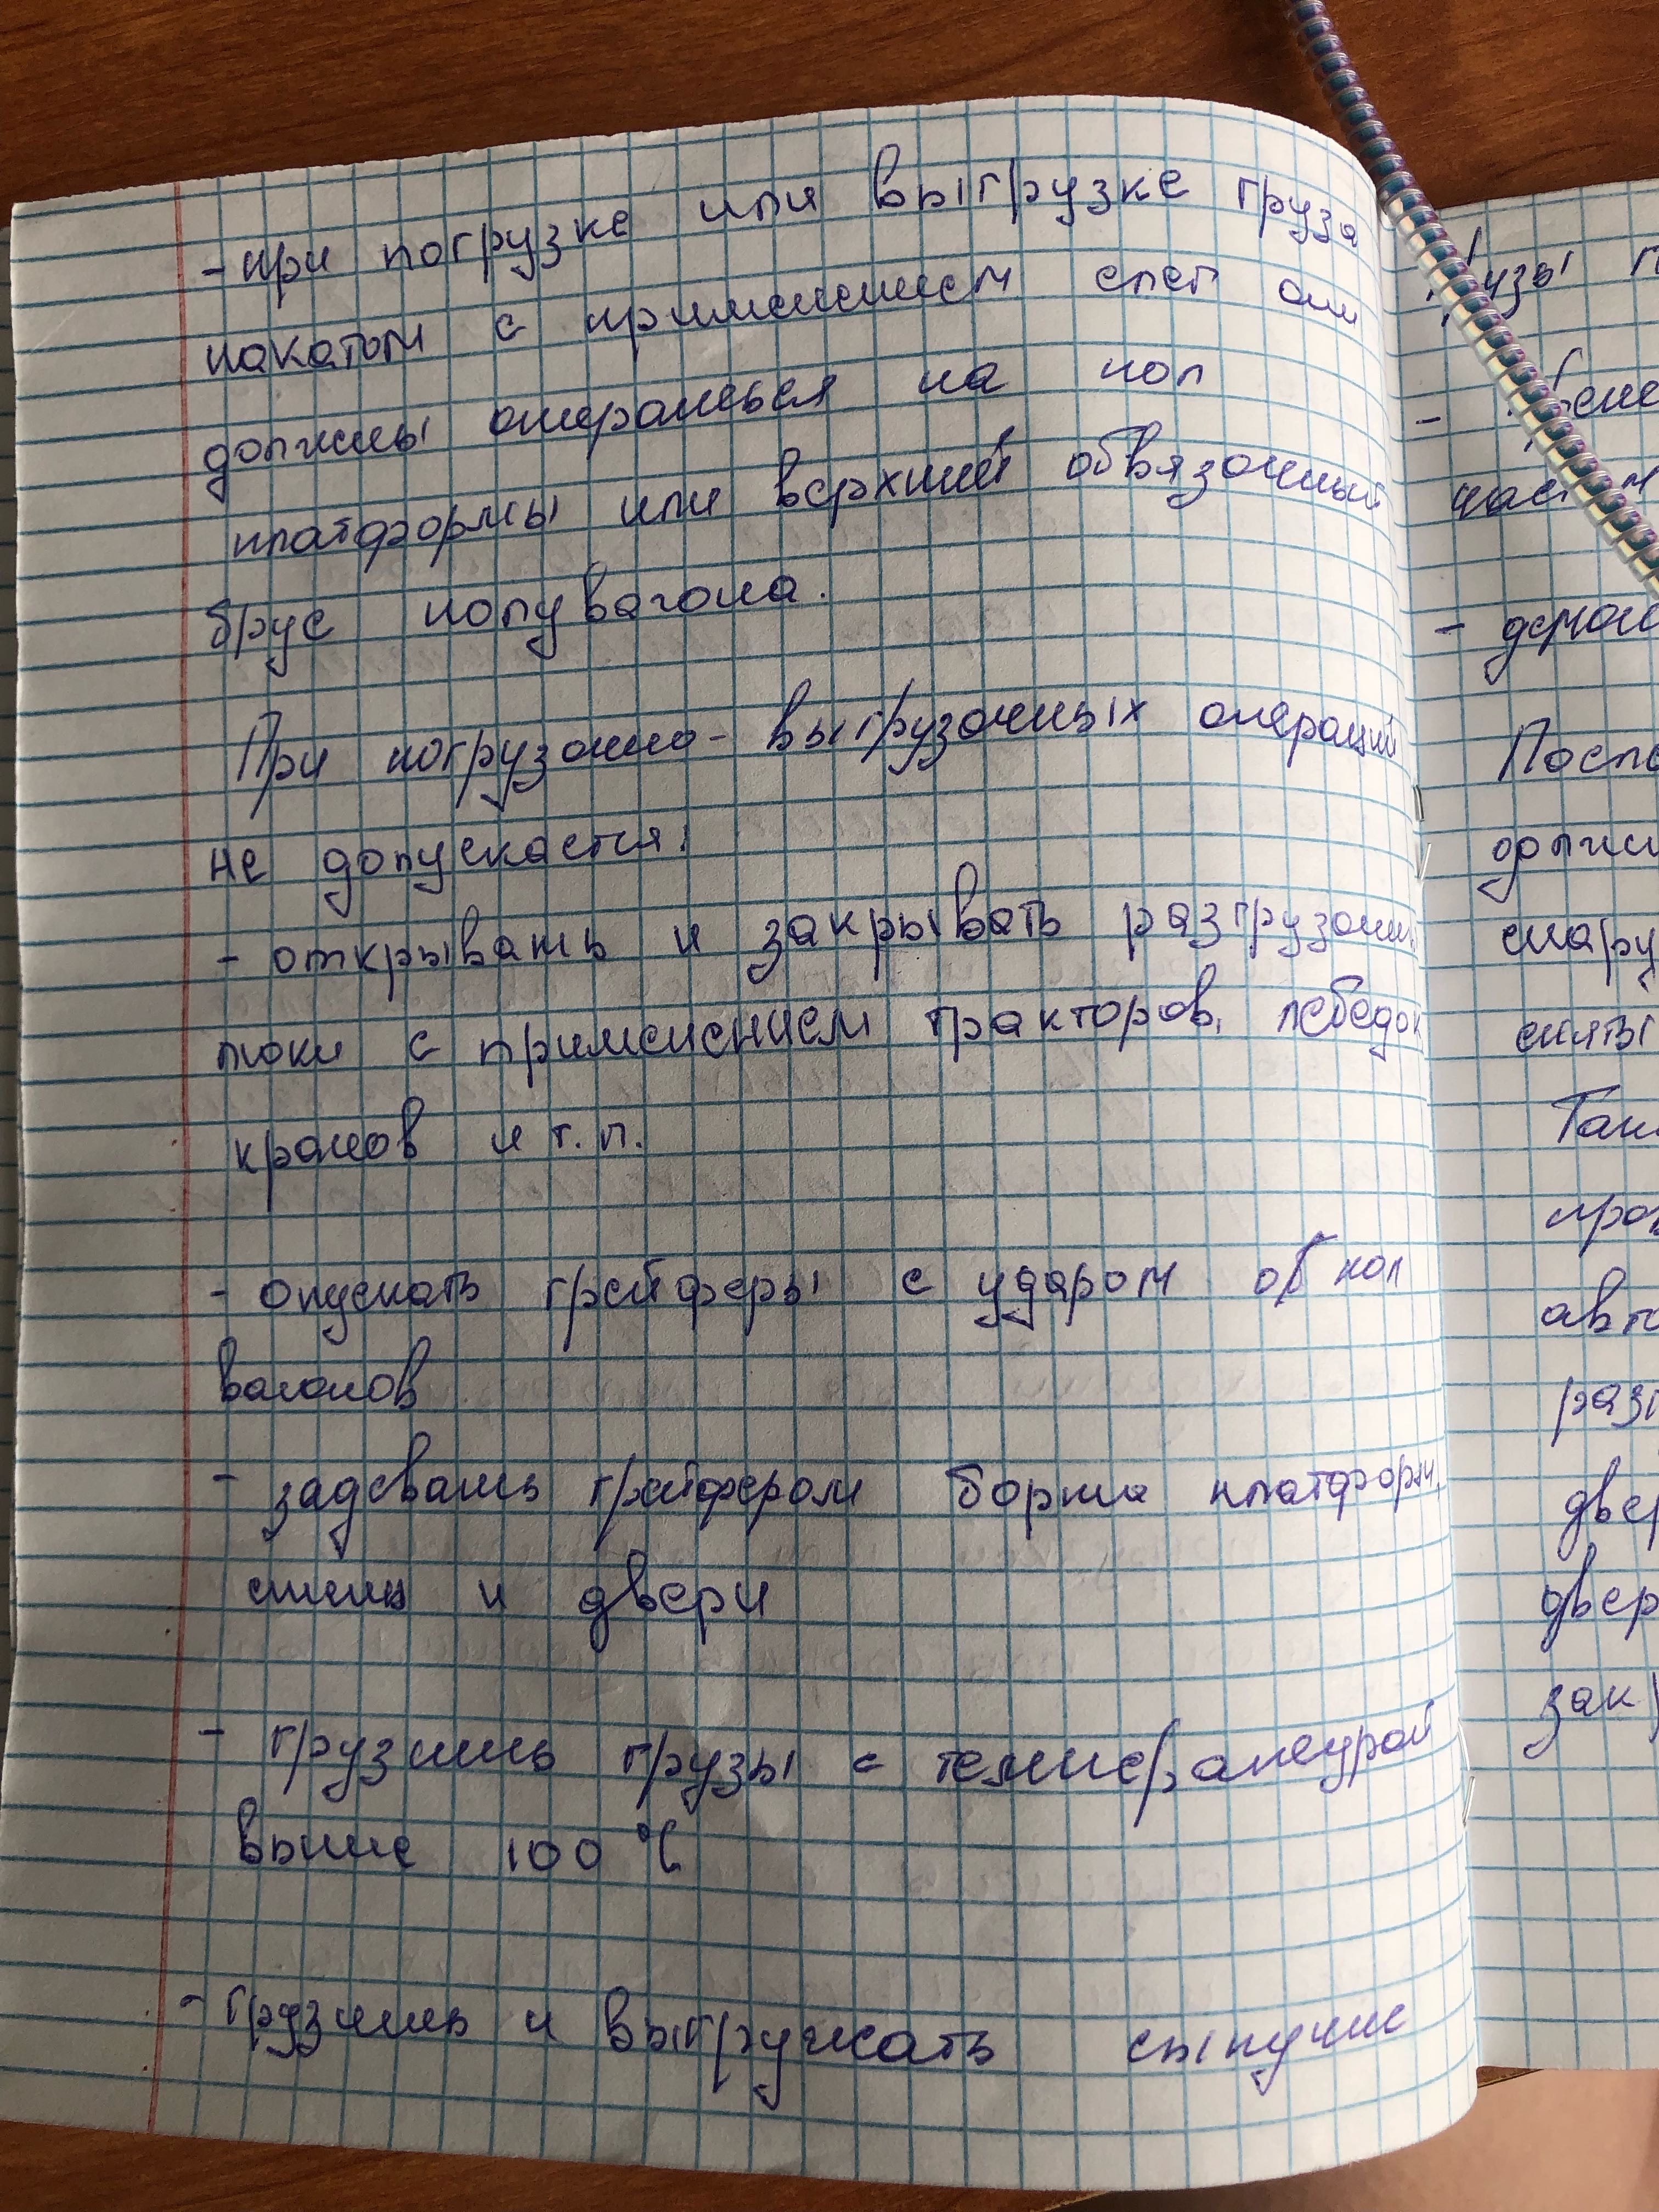 - при погрузке или выгрузке груза
накатом с применением слег они
должны опираться на пол
платформы или верхний обвязочный
брус полувагона.
При погрузочно-выгрузочных операций
не допускается:
- открывать и закрывать разгрузочн
люки с применением тракторов, лебедок
кранов и т.п.
- опускать грейферы с ударом об пол
вагонов
- задевать грейфером борта платформ,
стены и двери
- грузить грузы с температурой
выше 100 °С
- грузить и выгружать сыпучие
узы п
-
- демон
Посл
должн
снару
сняты
Так
авто
разг
двер
двер
зак